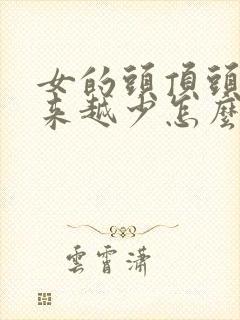 女的頭頂頭
來越少怎麼
雲霄瀟